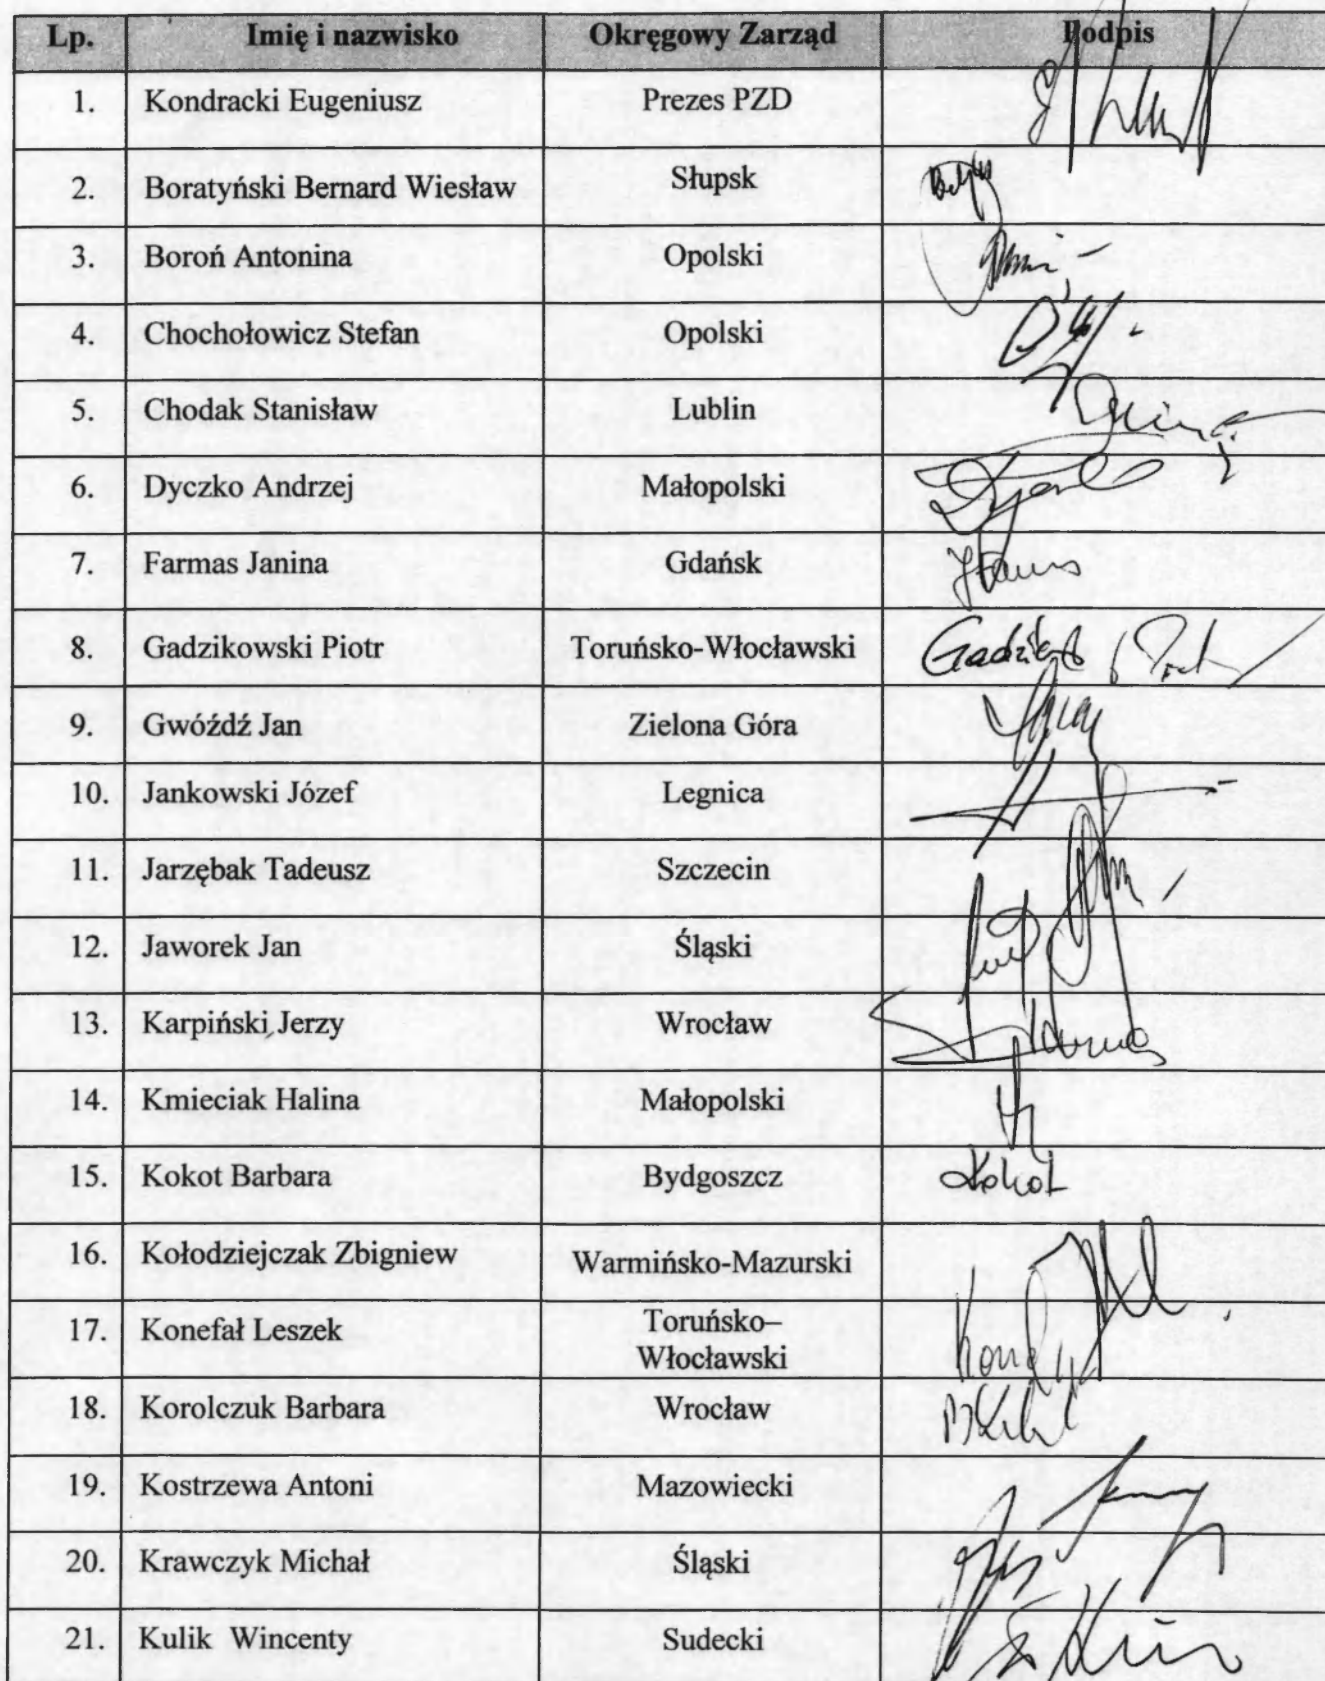 Lp. Imię i nazwisko Okręgowy Zarząd Podpis
1. Kondracki Eugeniusz Prezes PZD
2. Boratyński Bernard Wiesław Słupsk
3. Boroń Antonina Opolski
4. Chochołowicz Stefan Opolski
5. Chodak Stanisław Lublin
6. Dyczko Andrzej Małopolski
7. Farmas Janina Gdańsk
8. Gadzikowski Piotr Toruńsko-Włocławski
9. Gwóźdź Jan Zielona Góra
10. Jankowski Józef Legnica
11. Jarzębak Tadeusz Szczecin
12. Jaworek Jan Śląski
13. Karpiński Jerzy Wrocław
14. Kmieciak Halina Małopolski
15. Kokot Barbara Bydgoszcz Kokot
16. Kołodziejczak Zbigniew Warmińsko-Mazurski
17. Konefał Leszek Toruńsko–
Włocławski
18. Korolczuk Barbara Wrocław
19. Kostrzewa Antoni Mazowiecki
20. Krawczyk Michał Śląski
21. Kulik Wincenty Sudecki